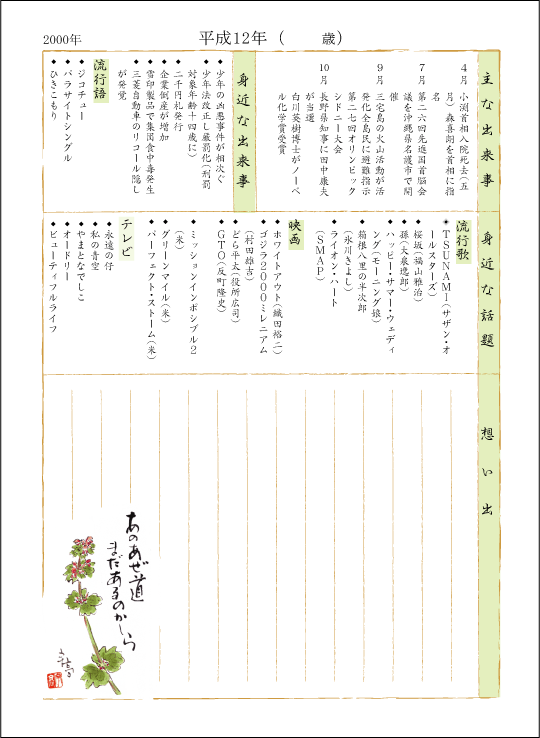 2000年
平成12年（　　歳）
主な出来事
4月 小渕首相入院死去（五
月）森喜朗を首相に指
名
7月 第二六回先進国首脳会
議を沖縄県名護市で開
催
9月 三宅島の火山活動が活
発化全島民に避難指示
第二七回オリンピック
シドニー大会
10月 長野県知事に田中康夫
が当選
白川英樹博士がノーベ
ル化学賞受賞
身近な出来事
◆少年の凶悪事件が相次ぐ
◆少年法改正し厳罰化（刑罰
対象年齢十四歳に）
◆二千円札発行
◆企業倒産が増加
◆雪印製品で集団食中毒発生
◆三菱自動車のリコール隠し
が発覚
流行語
◆ジコチュー
◆パラサイトシングル
◆ひきこもり
身近な話題
流行歌
◆TSUNAMI（サザン・オ
ールスターズ）
◆桜坂（福山雅治）
◆孫（大泉逸郎）
◆ハッピー・サマー・ウェディ
ング（モーニング娘）
◆箱根八里の半次郎
（氷川きよし）
◆ライオン・ハート
（SMAP）
映画
◆ホワイトアウト（織田裕二）
◆ゴジラ2000ミレニアム
（村田雄吉）
◆どら平太（役所広司）
◆GTO（反町隆史）
◆ミッションインポシブル2
（米）
◆グリーンマイル（米）
◆パーフェクト・ストーム（米）
テレビ
◆永遠の仔
◆私の青空
◆やまとなでしこ
◆オードリー
◆ビューティフルライフ
想い出
あのあぜ道
まだあるのかしら